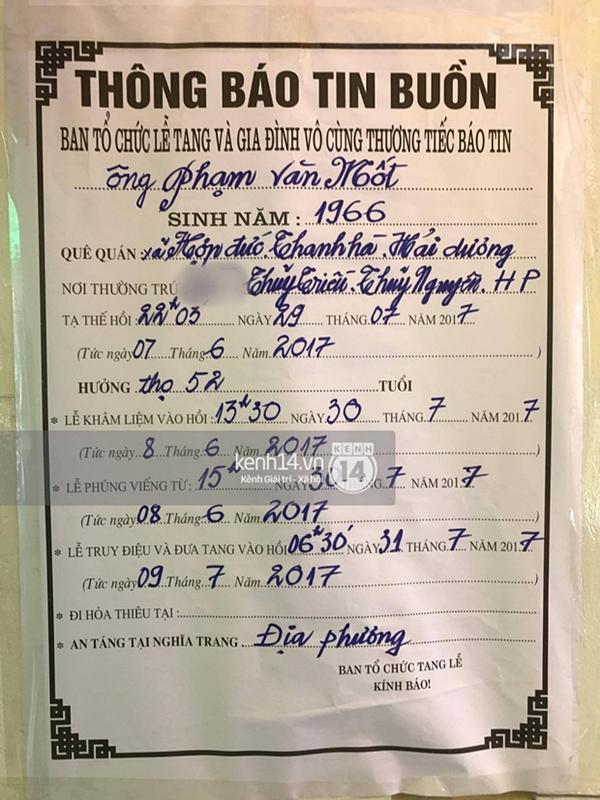 THÔNG BÁO TIN BUỒN
BAN TỔ CHỨC LỄ TANG VÀ GIA ĐÌNH VÔ CÙNG THƯƠNG TIẾC BÁO TIN
ông Phạm Văn Mốt
SINH NĂM : 1966
QUÊ QUÁN: xã Hợp đức. Thanh hà. Hải dương
NƠI THƯỜNG TRÚ Thủy Triều. Thủy Nguyên. H P
TẠ THẾ HỒI : 22h 03 NGÀY 29 THÁNG 07 NĂM 2017
(Tức ngày 07 Tháng 6 Năm 2017)
HƯỞNG thọ 52 TUỔI
* LỄ KHÂM LIỆM VÀO HỒI : 13h30 NGÀY 30 THÁNG 7 NĂM 2017
(Tức ngày 8 Tháng 6 Năm 2017)
kenh14.vn
Kênh Giải trí - Xã hội
KENH 14
* LỄ PHÚNG VIẾNG TỪ : 15h NGÀY 30 7 NĂM 2017
(Tức ngày 08 Tháng 6 Năm 2017)
* LỄ TRUY ĐIỆU VÀ ĐƯA TANG VÀO HỒI 06h30' NGÀY 31 THÁNG 7 NĂM 2017
(Tức ngày 09 Tháng 7 Năm 2017)
* ĐI HỎA THIÊU TẠI :
* AN TÁNG TẠI NGHĨA TRANG Địa phương
BAN TỔ CHỨC TANG LỄ
KÍNH BÁO!